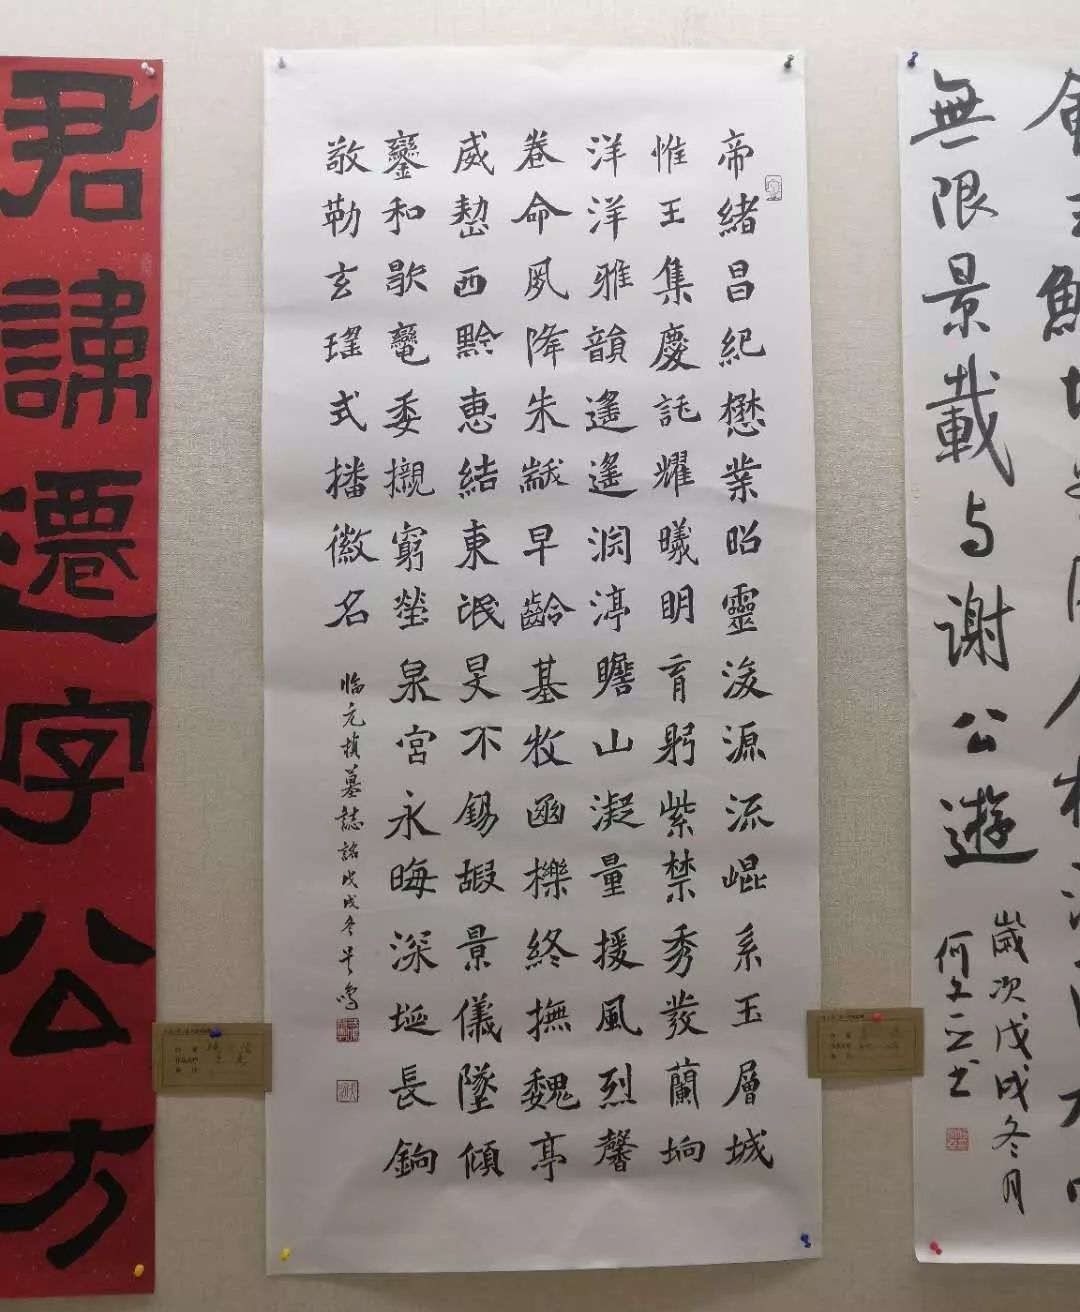 無限景載与谢公遊
歲次戊戌冬月
帝緒昌紀懋業昭靈浚源流崐系玉層城
惟王集慶託耀曦明育躬紫禁秀發蘭坰
洋洋雅韻遙遙渊渟瞻山凝量援風烈馨
卷命夙降朱黻早齡基牧函櫟終撫魏亭
威西黔惠結東氓旻不錫嘏景儀墜傾
鑾和歇委櫬窮塋泉宮永晦深埏長
敬勒玄式播徽名
临元楨墓誌銘戊戌冬吴鸣
君諱遷字公方